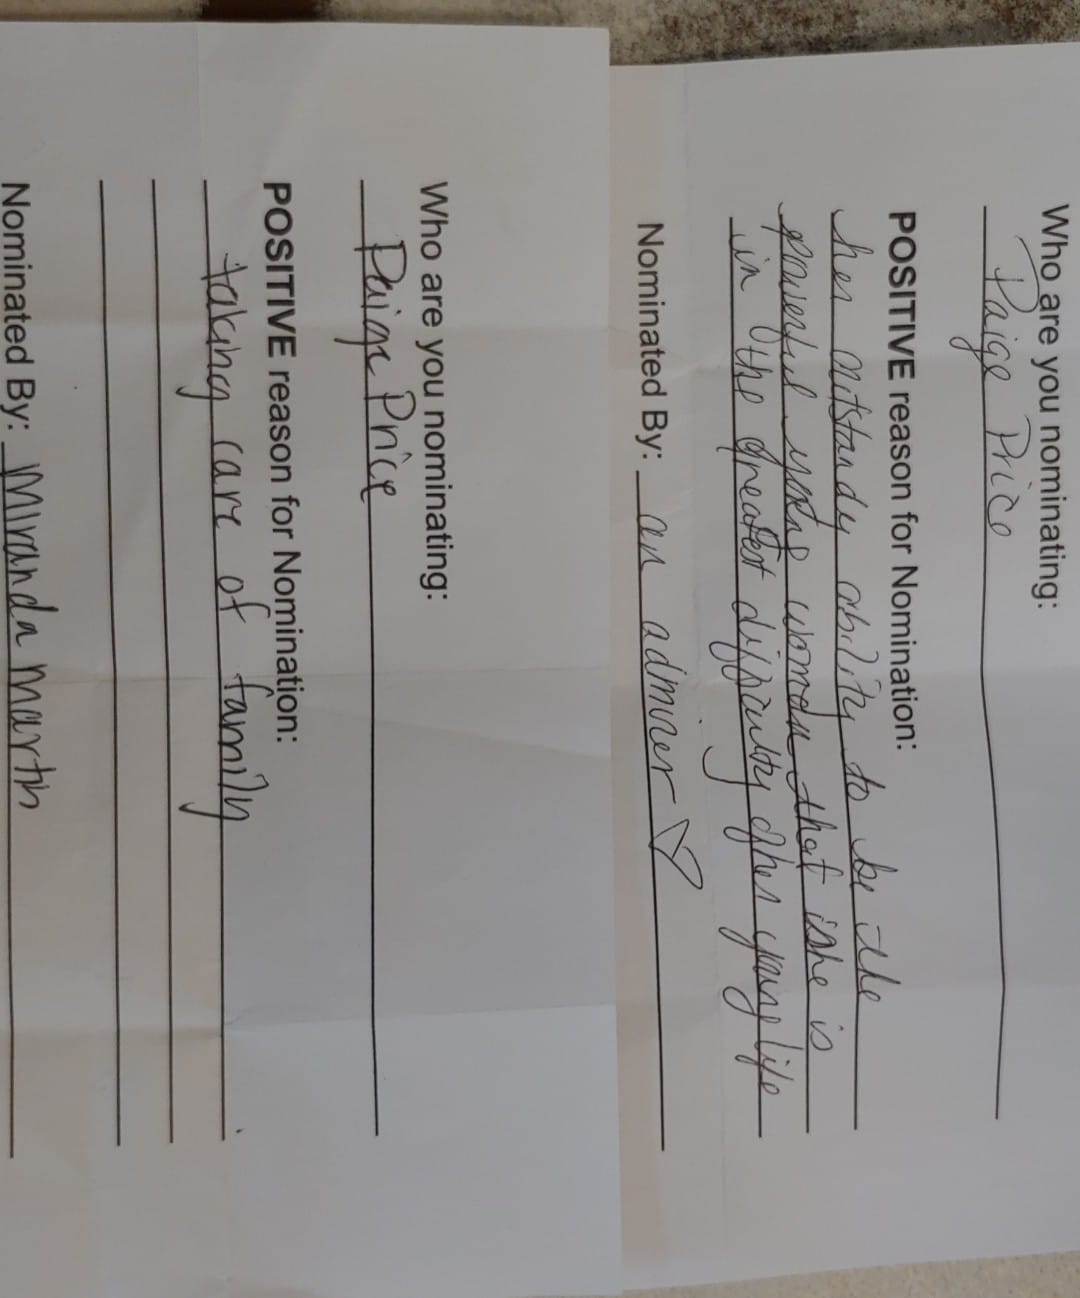 Who are you nominating:
Paige Price
POSITIVE reason for Nomination:
her outstandy ability to be the
powerful young woman that ishe is
in the greatest difficulty of her young life
Nominated By: an admirer ♡
Who are you nominating:
Paige Price
POSITIVE reason for Nomination:
taking care of family
Nominated By: Miranda Martin